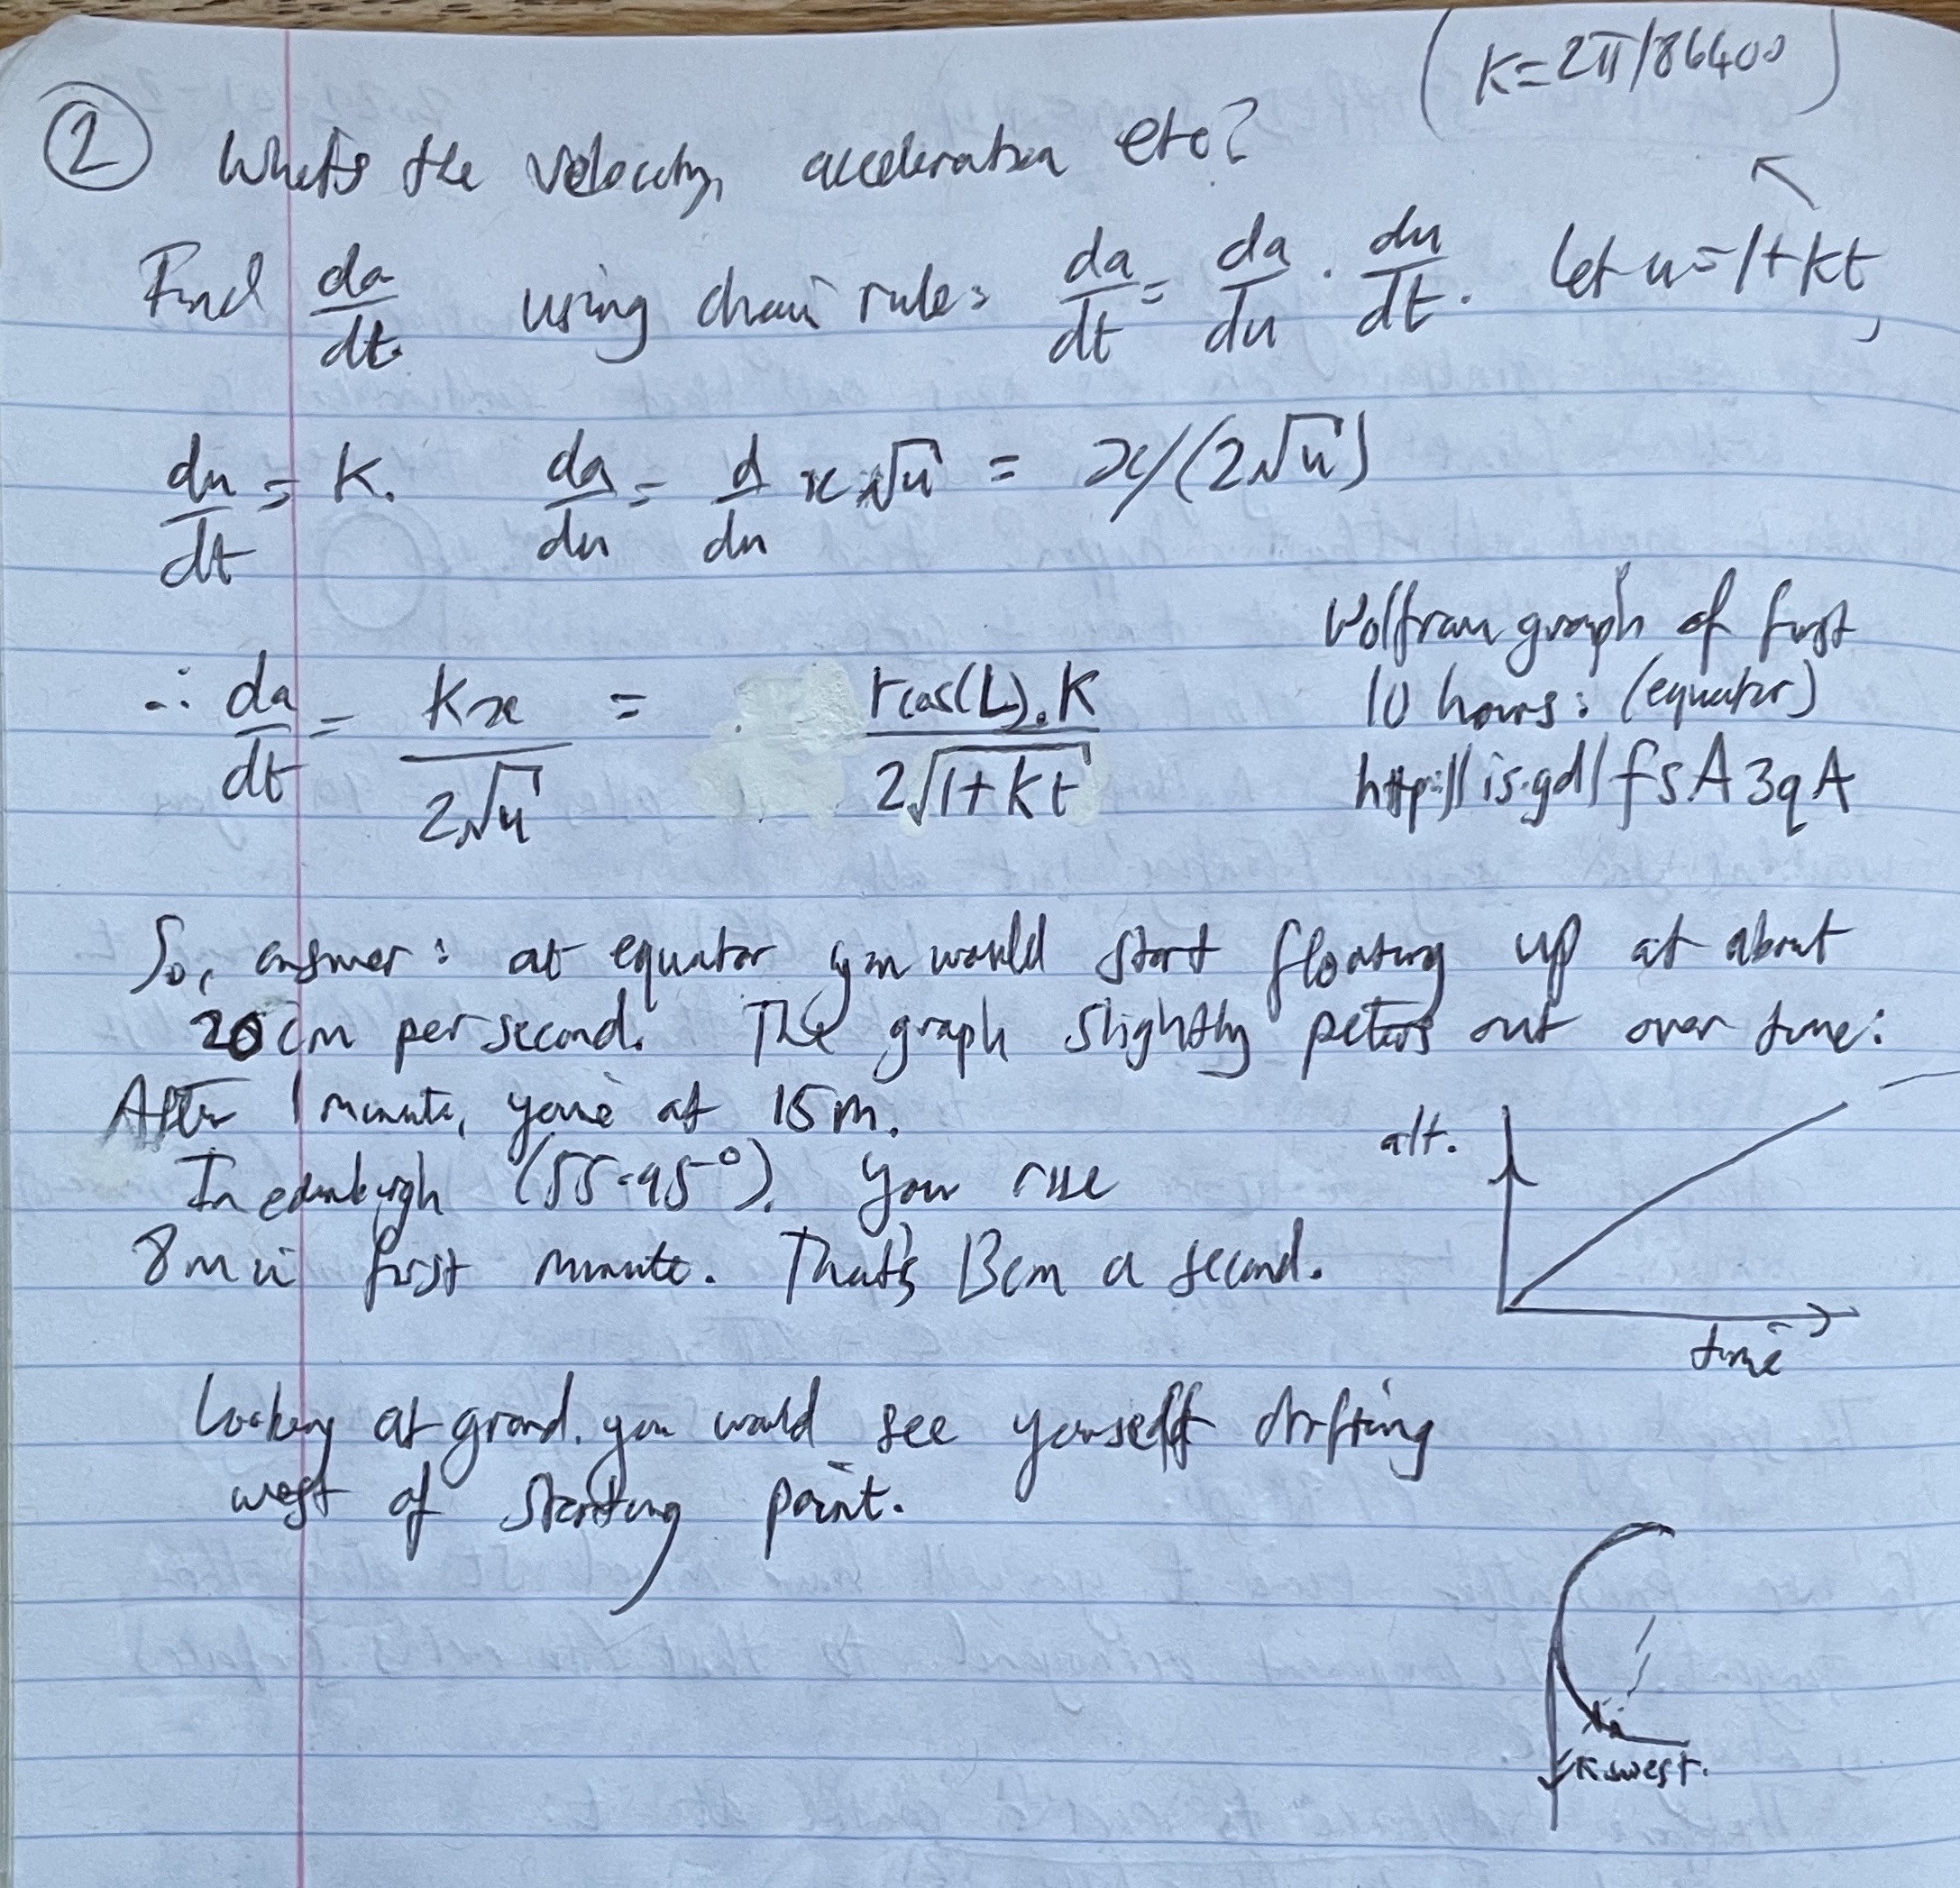 (K=2π/86400)
② What's the velocity, acceleration etc?
Find da/dt using chain rule: da/dt = da/du · du/dt. let u=1+kt,
du/dt = K. da/du = d/du x√u = x/(2√u)
Wolfram graph of first
10 hours: (equator)
http://is.gd/fsA3qA
∴ da/dt = Kx/2√u = rcos(L).K/2√1+kt
So, answer: at equator you would start floating up at about
20cm per second. The graph slightly peters out over time:
After 1 minute, you're at 15m.
alt.
In edinburgh (55.95°). you rise
8m in first minute. That's 13cm a second.
time
Looking at ground. you would see yourself drifting
west of starting point.
west.